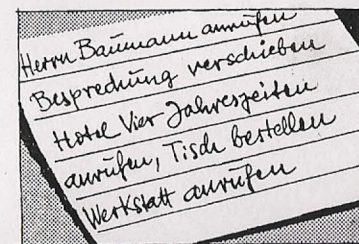 Herrn Baumann anrufen
Besprechung verschieben
Hotel Vier Jahreszeiten
anrufen, Tisch bestellen
Werkstatt anrufen